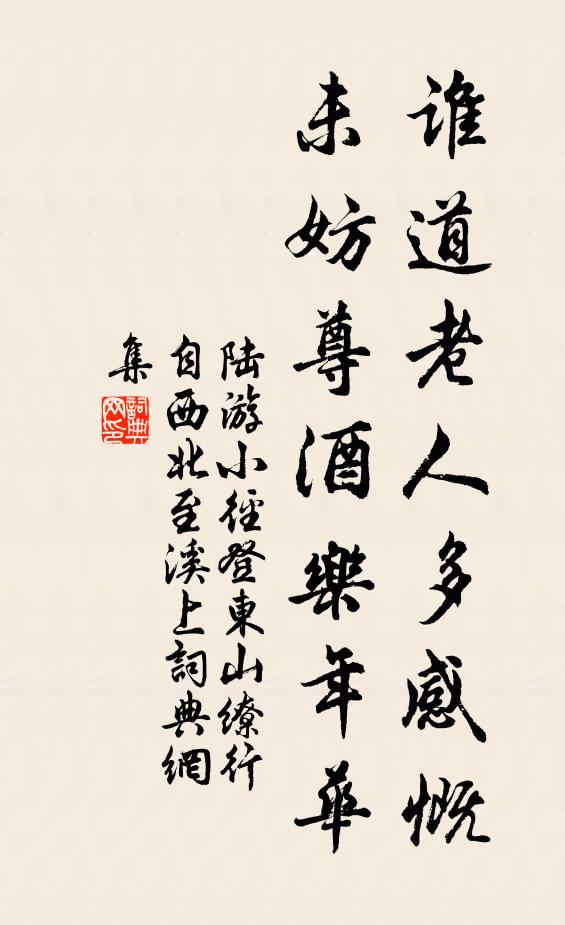 谁道老人多感慨
未妨尊酒樂年華
陆游小徑登東山繚行
自西北至溪上詞典網
集
詞典
网印